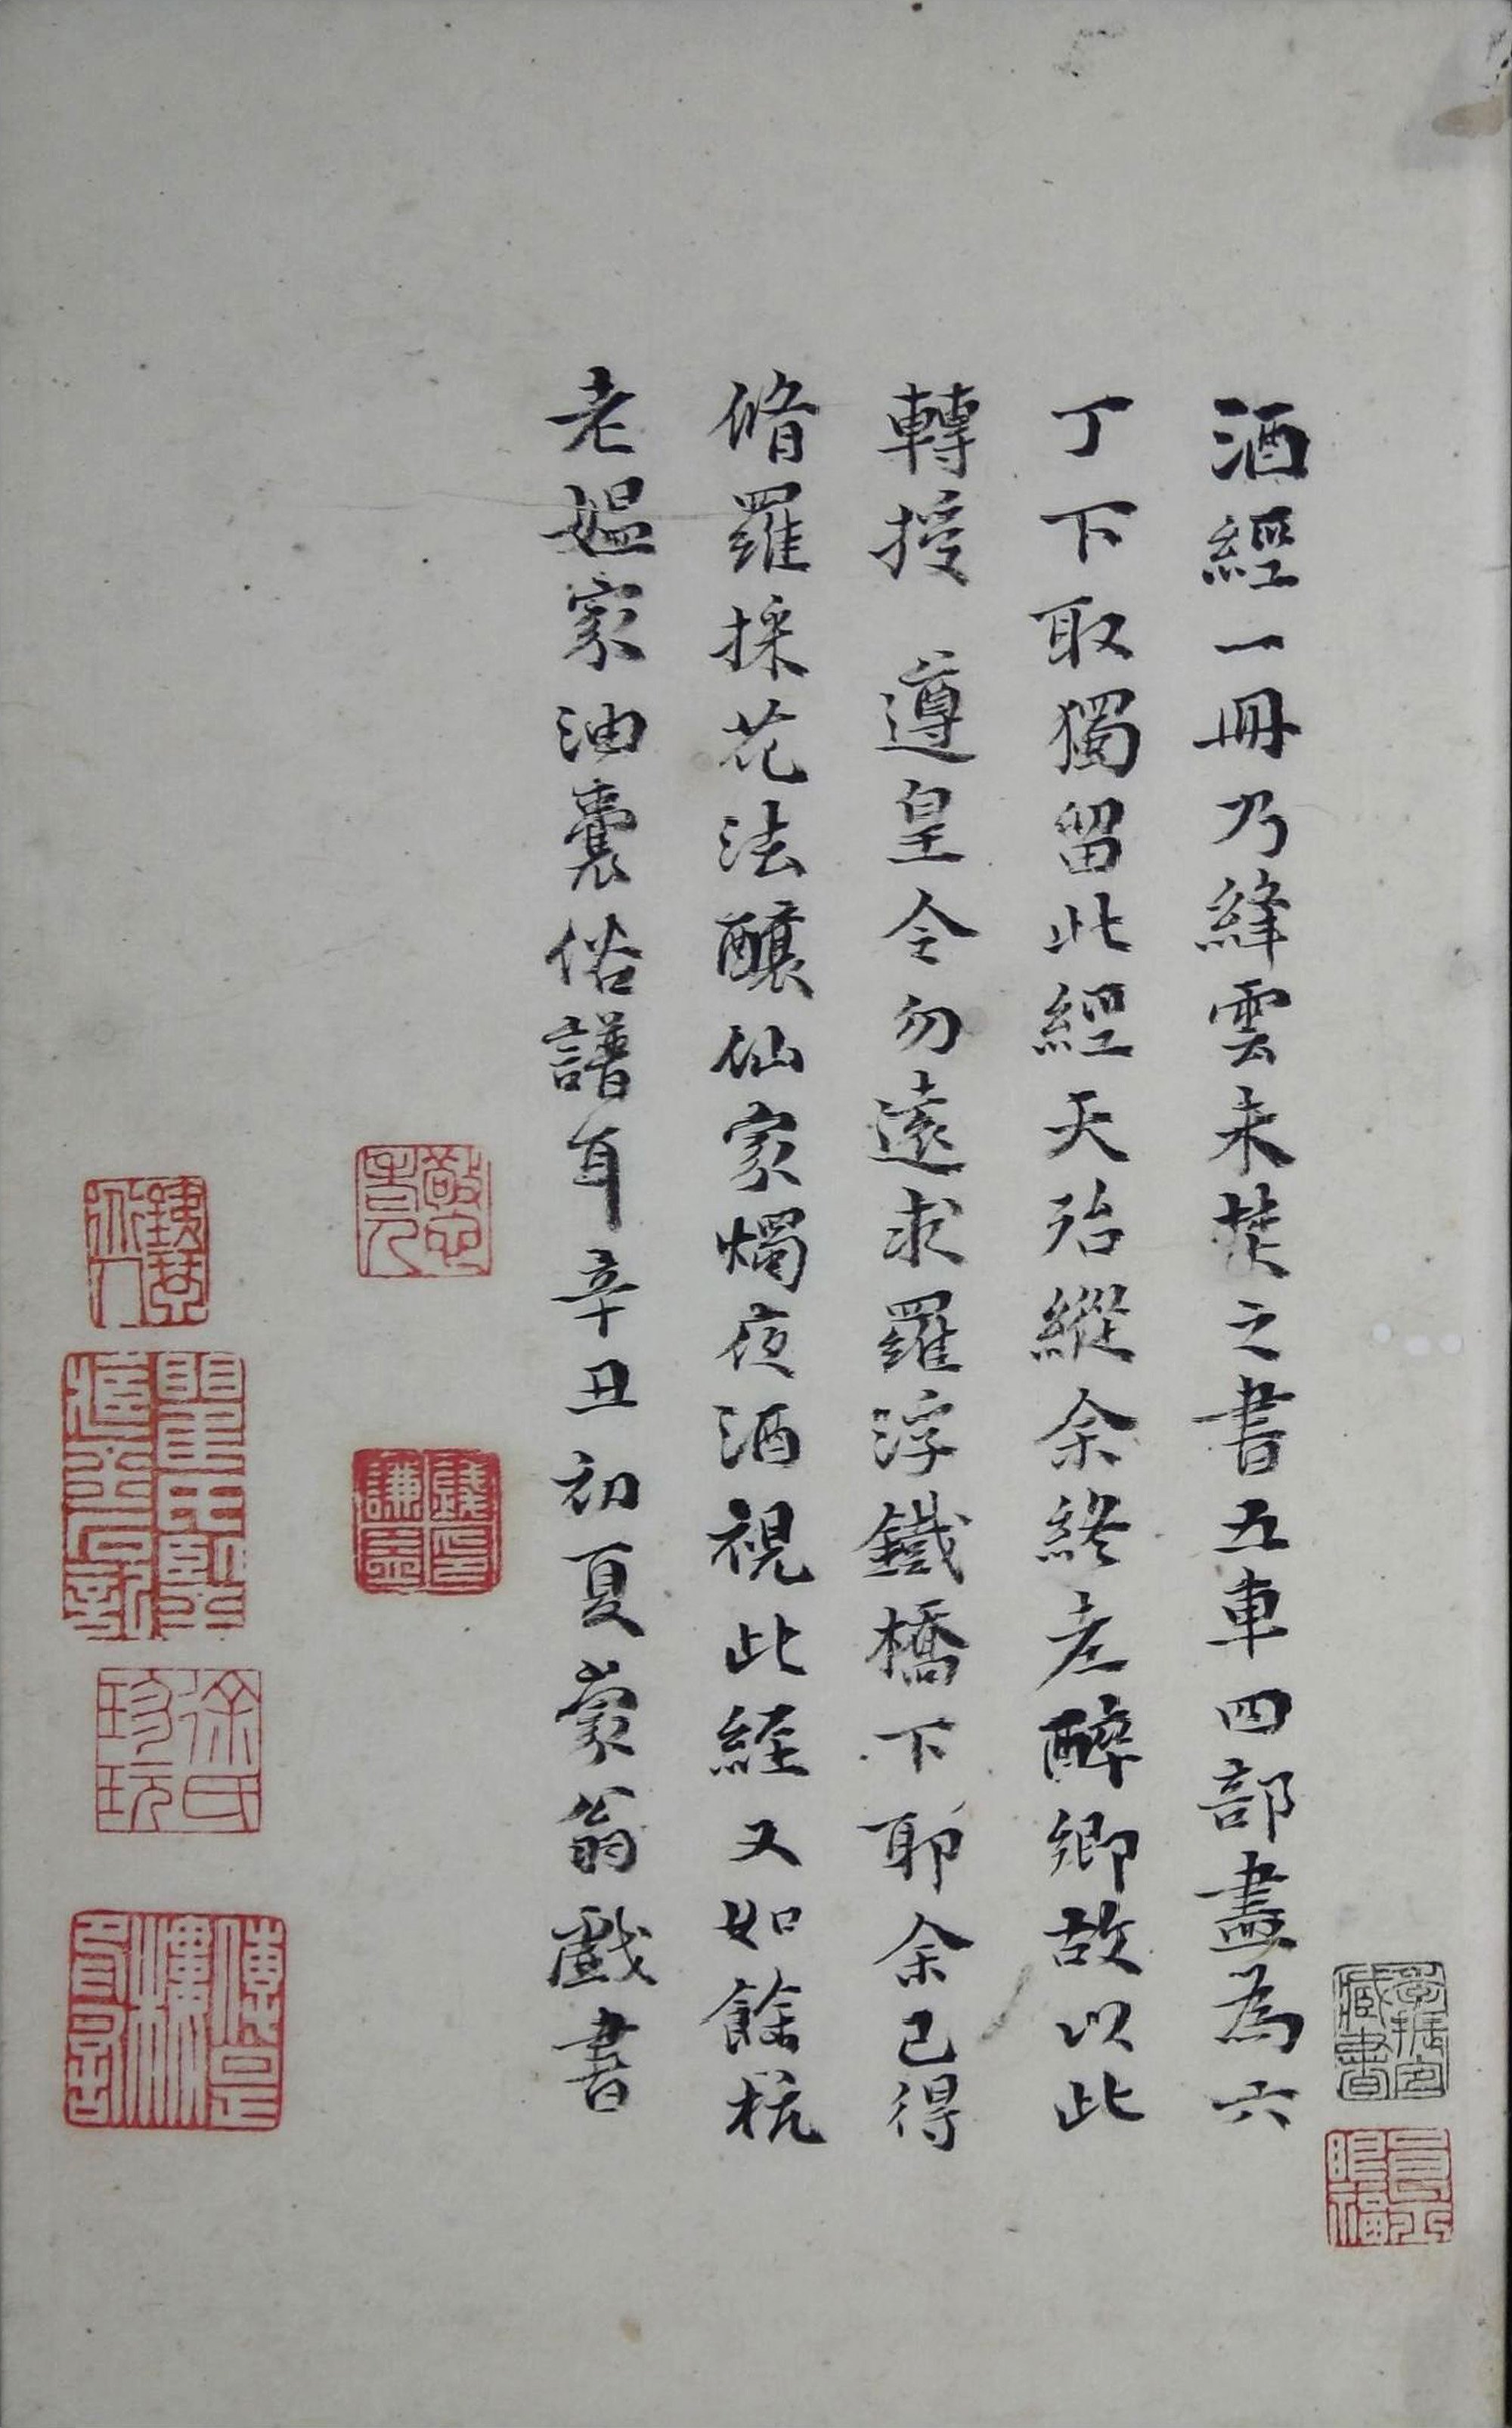 酒經一冊乃絳雲未焚之書五車四部盡為六
丁下取獨留此經天殆縱余終老醉鄉故以此
轉授 遵皇令勿遠求羅浮鐵橋下耶余已得
脩羅採花法釀仙家燭夜酒視此經又如餘杭
老媪家油囊俗譜耳辛丑初夏蒙翁戲書
敬它老人
錢謙益印
錢基
閬
徐氏珍玩
傳是樓
藏書
眼福